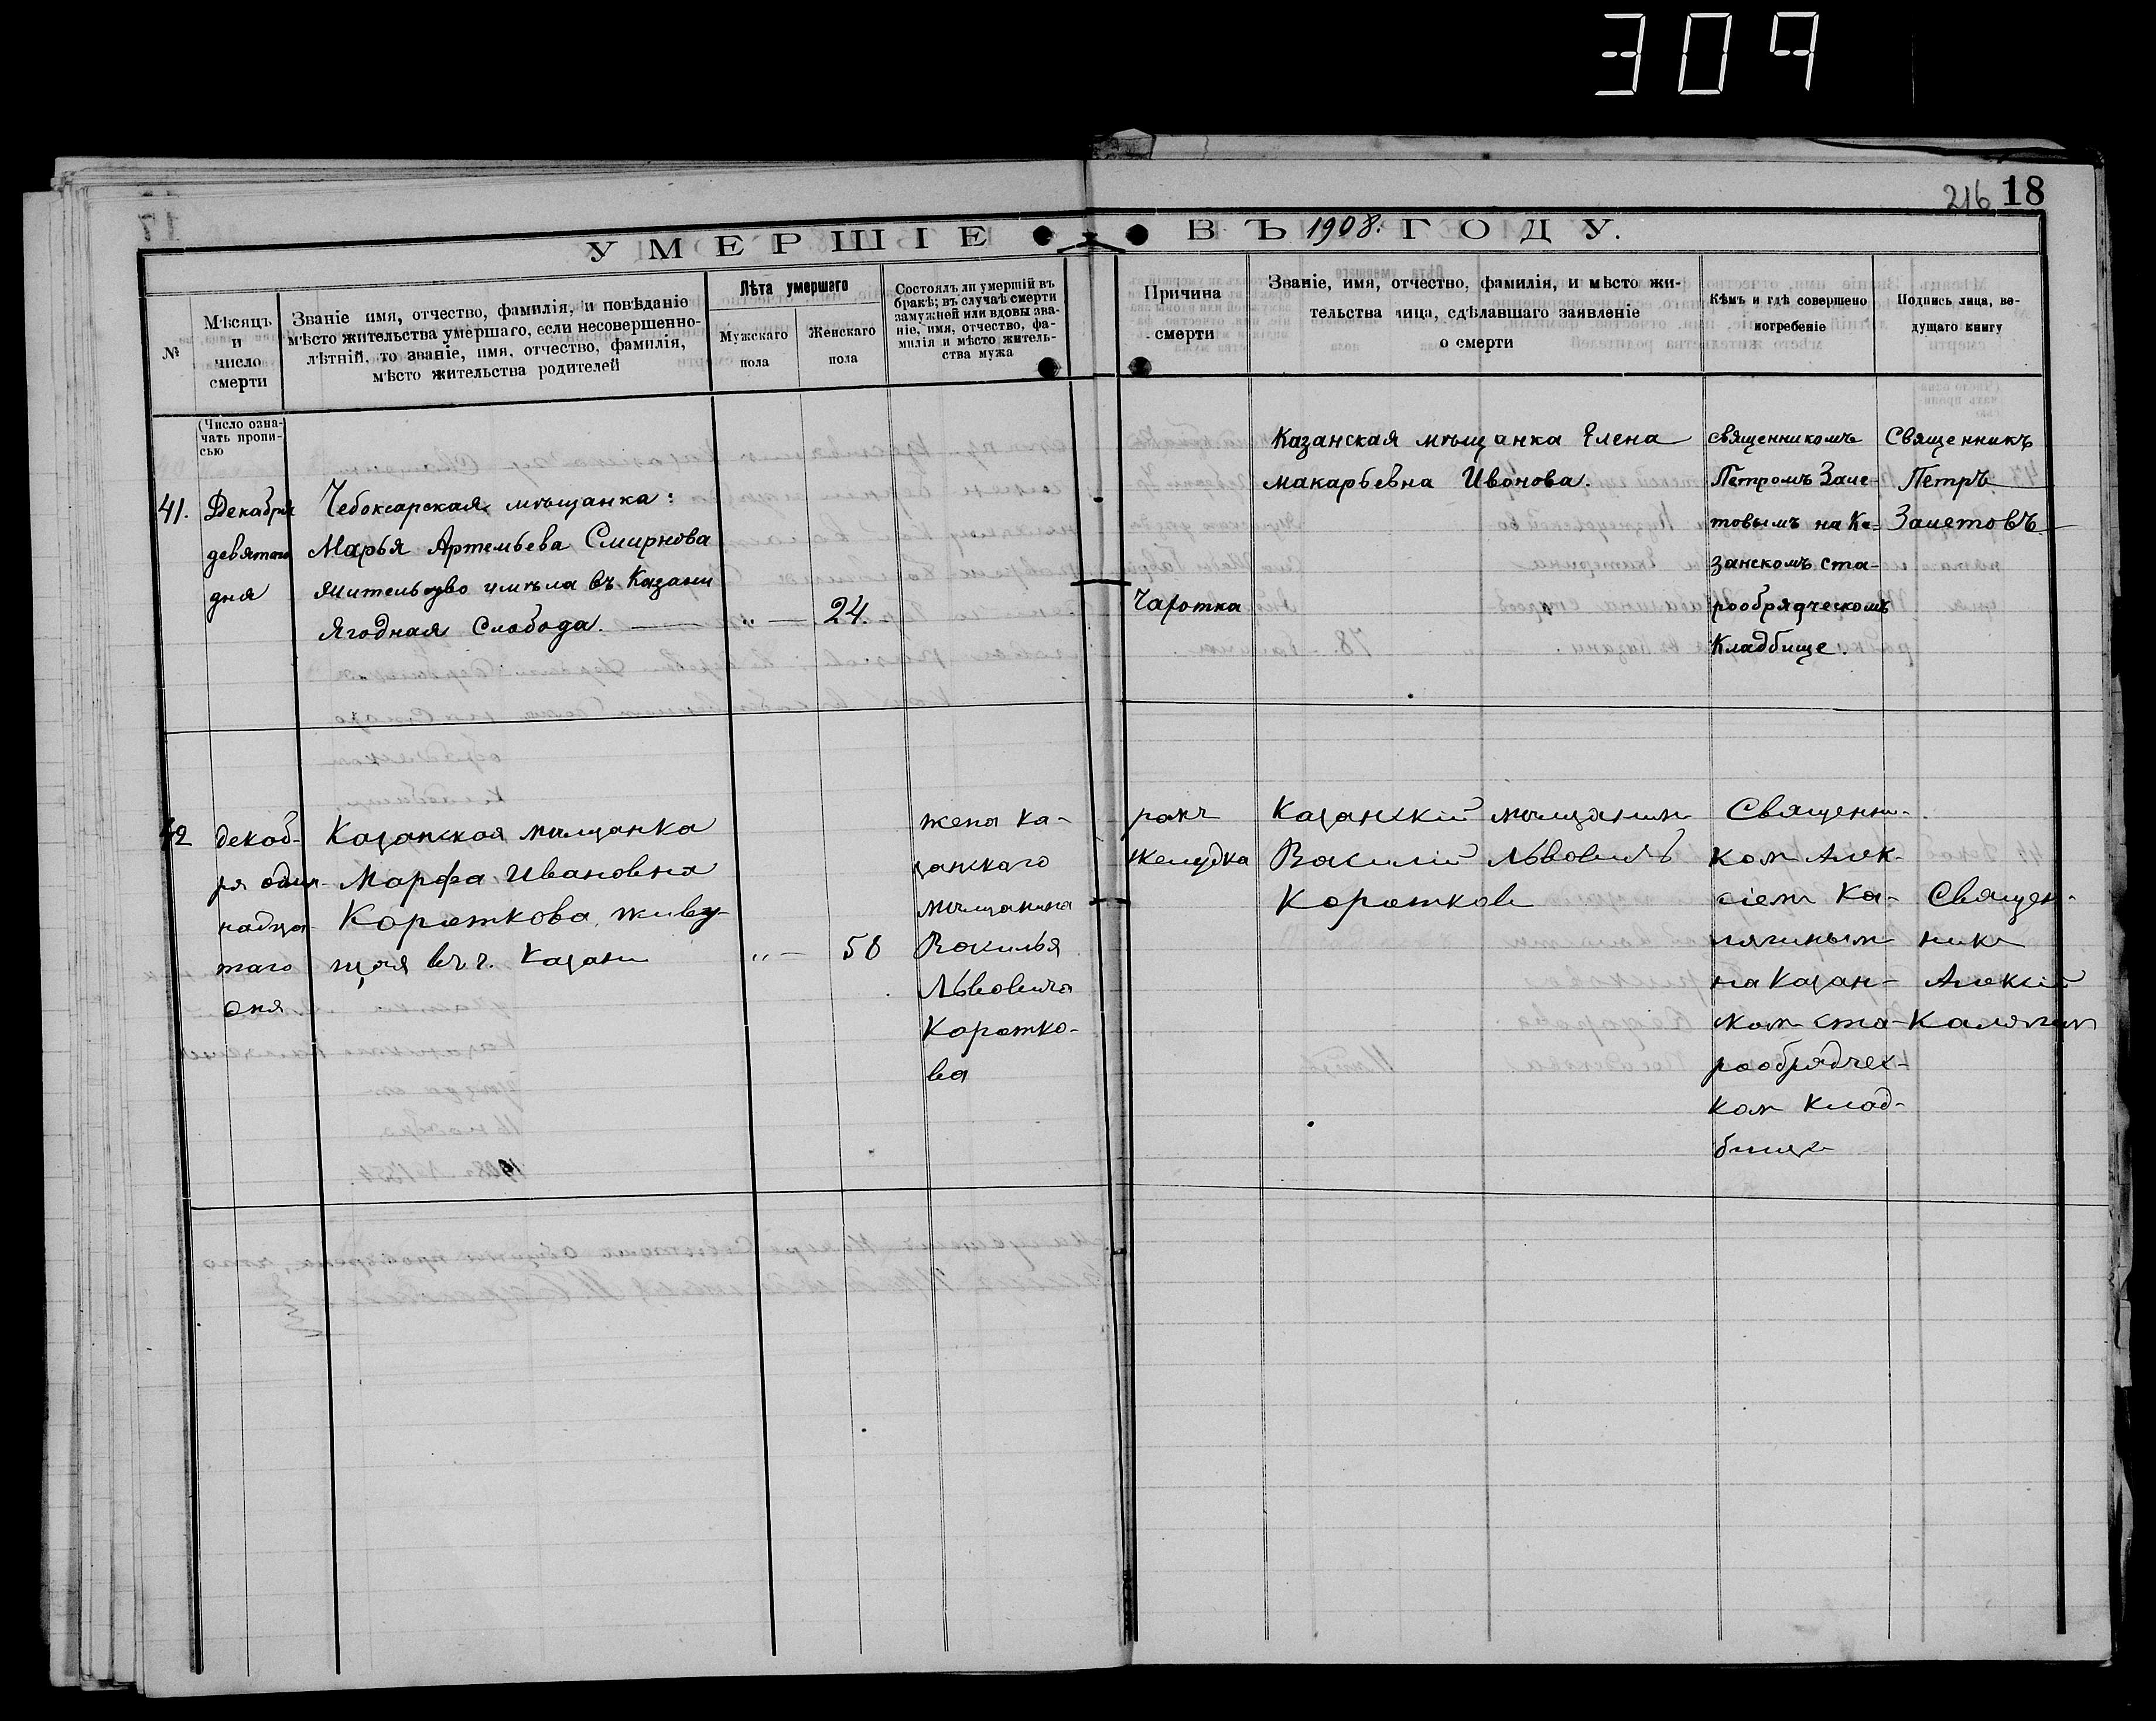 309
216 18
УМЕРШІЕ ВЪ 1908. ГОДУ.
№
Мѣсяцъ
и
число
смерти
Званіе имя, отчество, фамилія, и повѣданіе
мѣсто жительства умершаго, если несовершенно-
лѣтній, то званіе, имя, отчество, фамилія,
мѣсто жительства родителей
Лѣта умершаго
Мужскаго
пола
Женскаго
пола
Состоялъ ли умершій въ
бракѣ; въ случаѣ смерти
замужней или вдовы зва-
ніе, имя, отчество, фа-
милія и мѣсто житель-
ства мужа
Причина
смерти
Званіе, имя, отчество, фамилія, и мѣсто жи-
тельства лица, сдѣлавшаго заявленіе
о смерти
Кѣмъ и гдѣ совершено
погребеніе
Подпись лица, ве-
дущаго книгу
(Число озна-
чать пропи-
сью
41.
Декабря
девятаго
дня
Чебоксарская мѣщанка:
Марья Артемьева Смирнова
жительство имѣла въ Казани
Ягодная Слобода.
" — 24.
Чахотка
Казанская мѣщанка Елена
Макарьевна Иванова.
священникомъ
Петромъ Заче-
товымъ на Ка-
занскомъ ста-
рообрядческомъ
Кладбище.
Священникъ
Петръ
Зачетовъ
42
декаб-
ря один-
надца-
таго
дня
Казанская мѣщанка
Марфа Ивановна
Короткова, живу-
щая въ г. Казани
" — 58
жена ка-
занскаго
мѣщанина
Василья
Львовича
Коротко-
ва
ракъ
желудка
Казанскій мѣщанин
Василій Львовичъ
Коротков
Священни-
ком Алек-
сіем Ка-
лягиным
на Казан-
ском ста-
рообрядчес-
ком клад-
бище
Священ-
ник
Алексій
Калягин